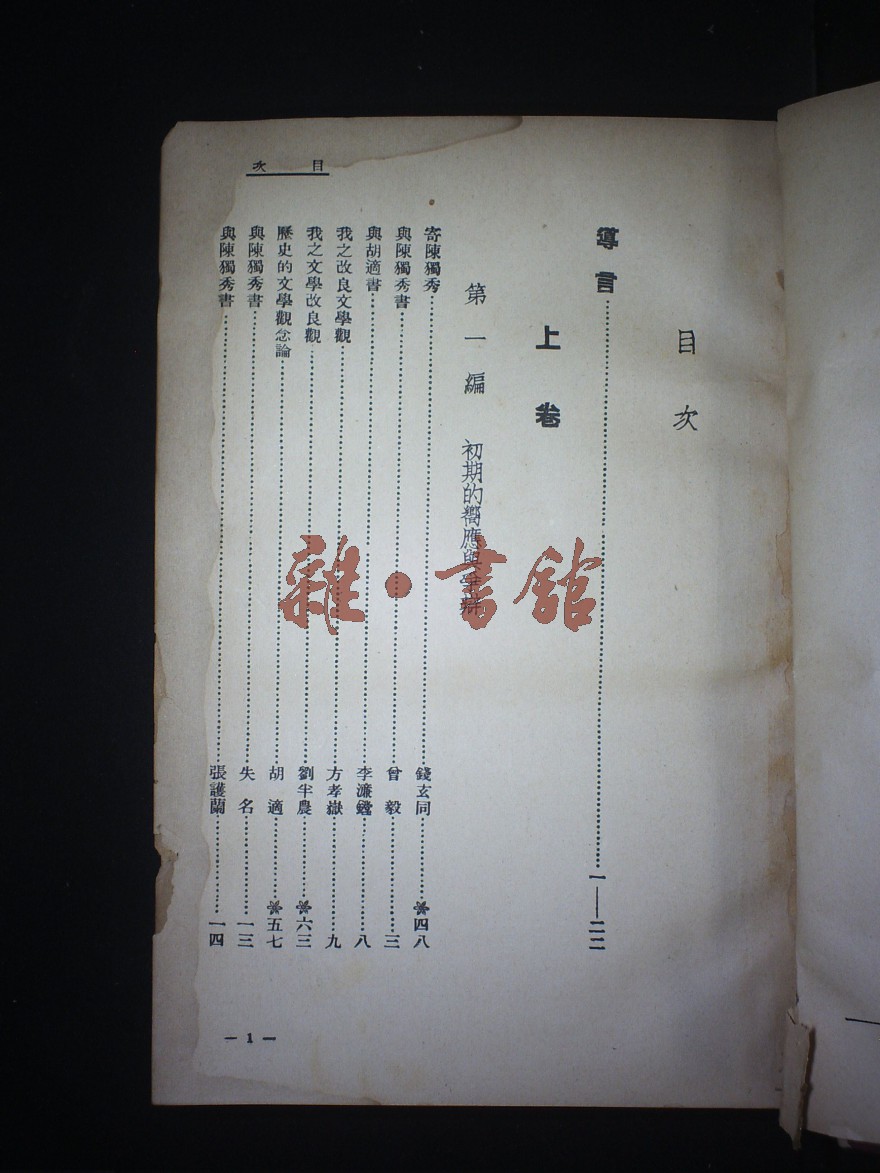 目次
目次
導言……一—二二
上卷
第一編 初期的嚮應與爭辯
寄陳獨秀……錢玄同……※四八
與陳獨秀書……曾毅……三
與胡適書……李濂鏜……八
我之改良文學觀……方孝嶽……九
我之文學改良觀……劉半農……※六三
歷史的文學觀念論……胡適……※五七
與陳獨秀書……失名……一三
與陳獨秀書……張護蘭……一四
— 1 —
雜·書館